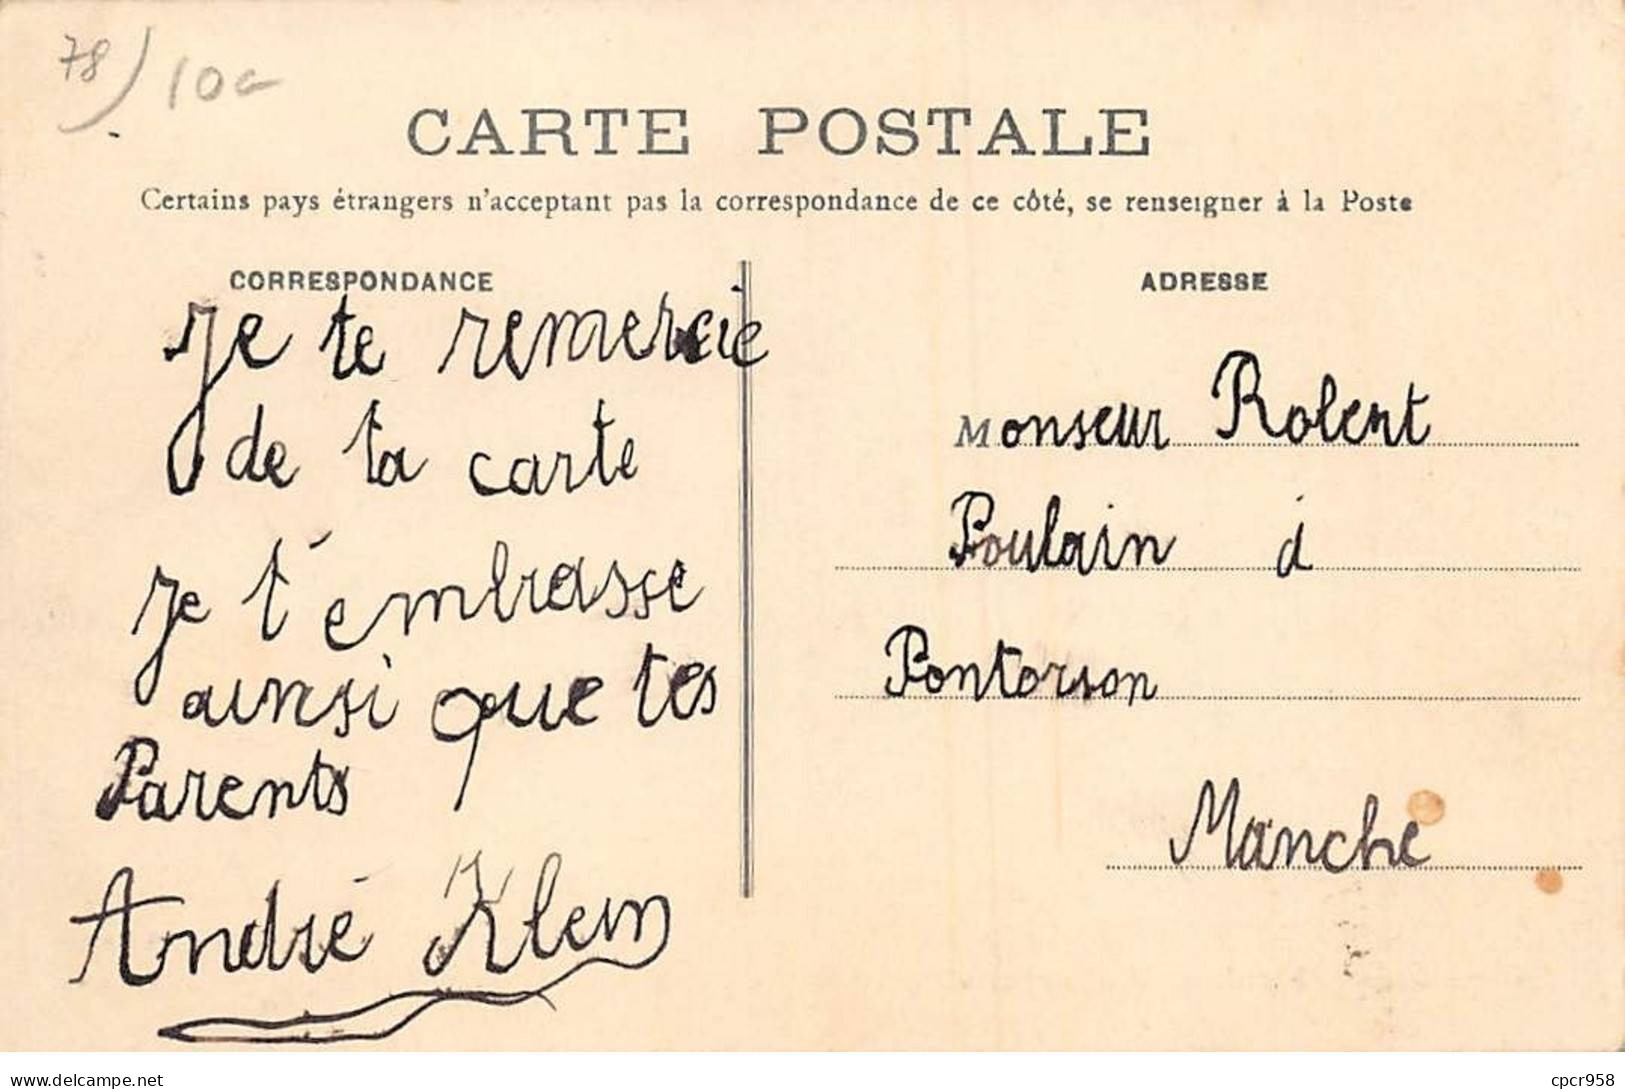 78/ 10
CARTE POSTALE
Certains pays étrangers n'acceptant pas la correspondance de ce côté, se renseigner à la Poste
CORRESPONDANCE
Je te remercie
de ta carte
Je t'embrasse
ainsi que tes
Parents
André Klein
ADRESSE
Monseur Robert
Poulain à
Pontorson
Manche
delcampe.net
cpcr958